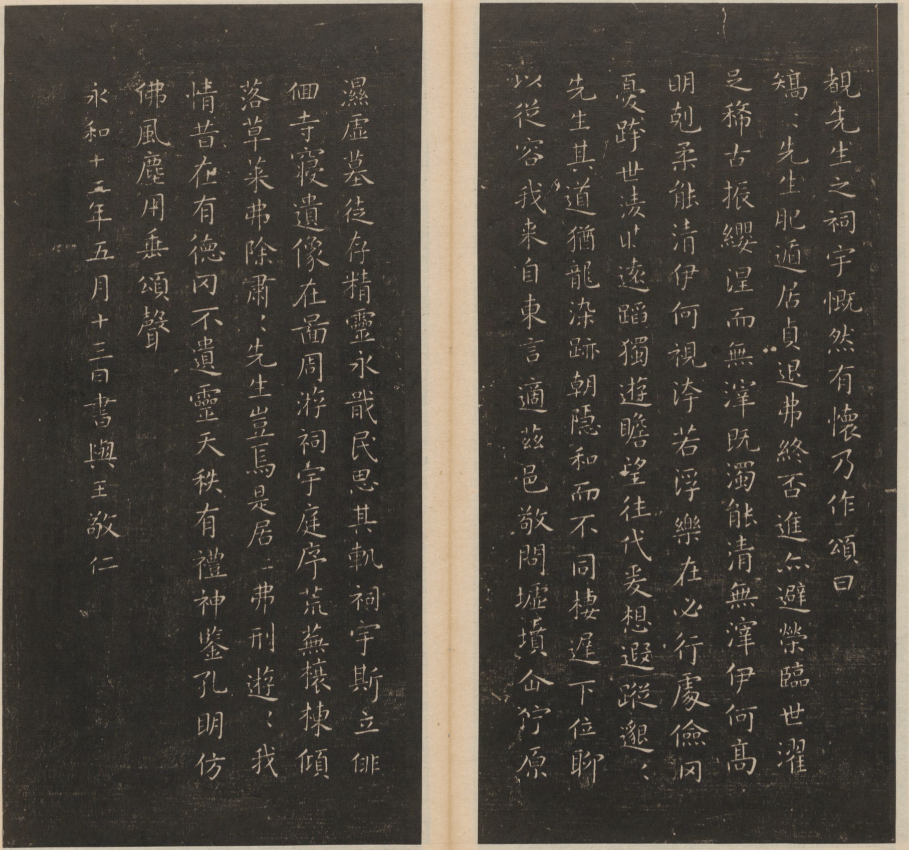 覩先生之祠宇慨然有懷乃作頌曰
矯〻先生肥遁居貞退弗終否進亦避榮臨世濯
足稀古振纓涅而無滓既濁能清無滓伊何高
明剋柔能清伊何視汙若浮樂在必行處儉罔
憂跨世淩時遠蹈獨遊瞻望往代爰想遐蹤邈〻
先生其道猶龍染跡朝隱和而不同棲遲下位聊
以從容我来自東言適茲邑敬問墟墳企佇原
濕虛墓徒存精靈永戢民思其軌祠宇斯立俳
佪寺寢遺像在啚周游祠宇庭序荒蕪榱棟傾
落草萊弗除肅〻先生豈焉是居〻弗刑遊〻我
情昔在有德罔不遺靈天秩有禮神鑒孔明仿
佛風塵用垂頌聲
永和十二年五月十三日書與王敬仁